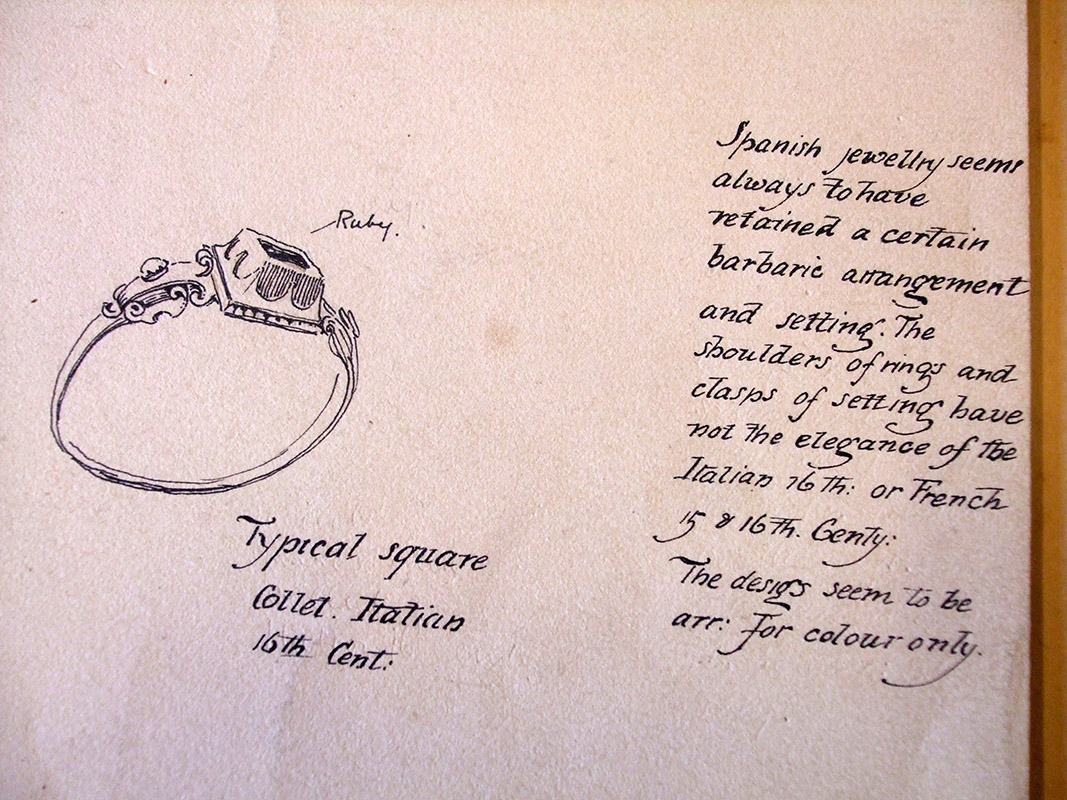 Ruby.
Typical square
Collet. Italian
16th Cent:
Spanish jewellry seems
always to have
retained a certain
barbaric arrangement
and setting. The
shoulders of rings and
clasps of setting have
not the elegance of the
Italian 16th: or French
15 & 16th. Centy:
The desigs seem to be
arr: for colour only.